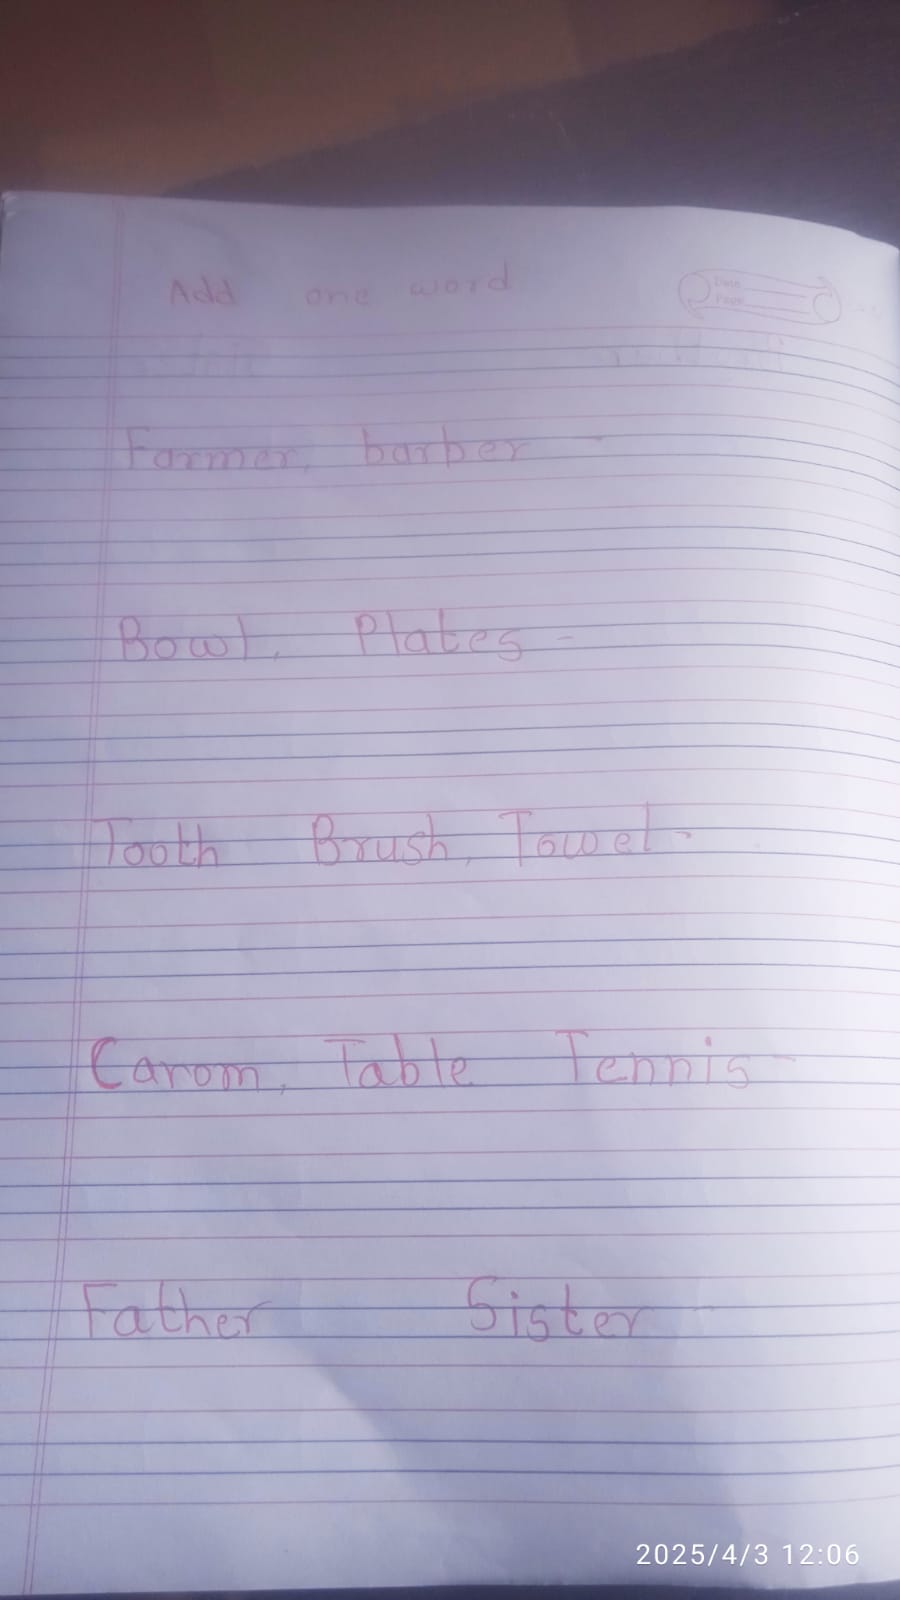 Add one word
Date
Page
Farmer, barber -
Bowl, Plates -
Tooth Brush, Towel -
Carom, Table Tennis -
Father Sister -
2025/4/3 12:06